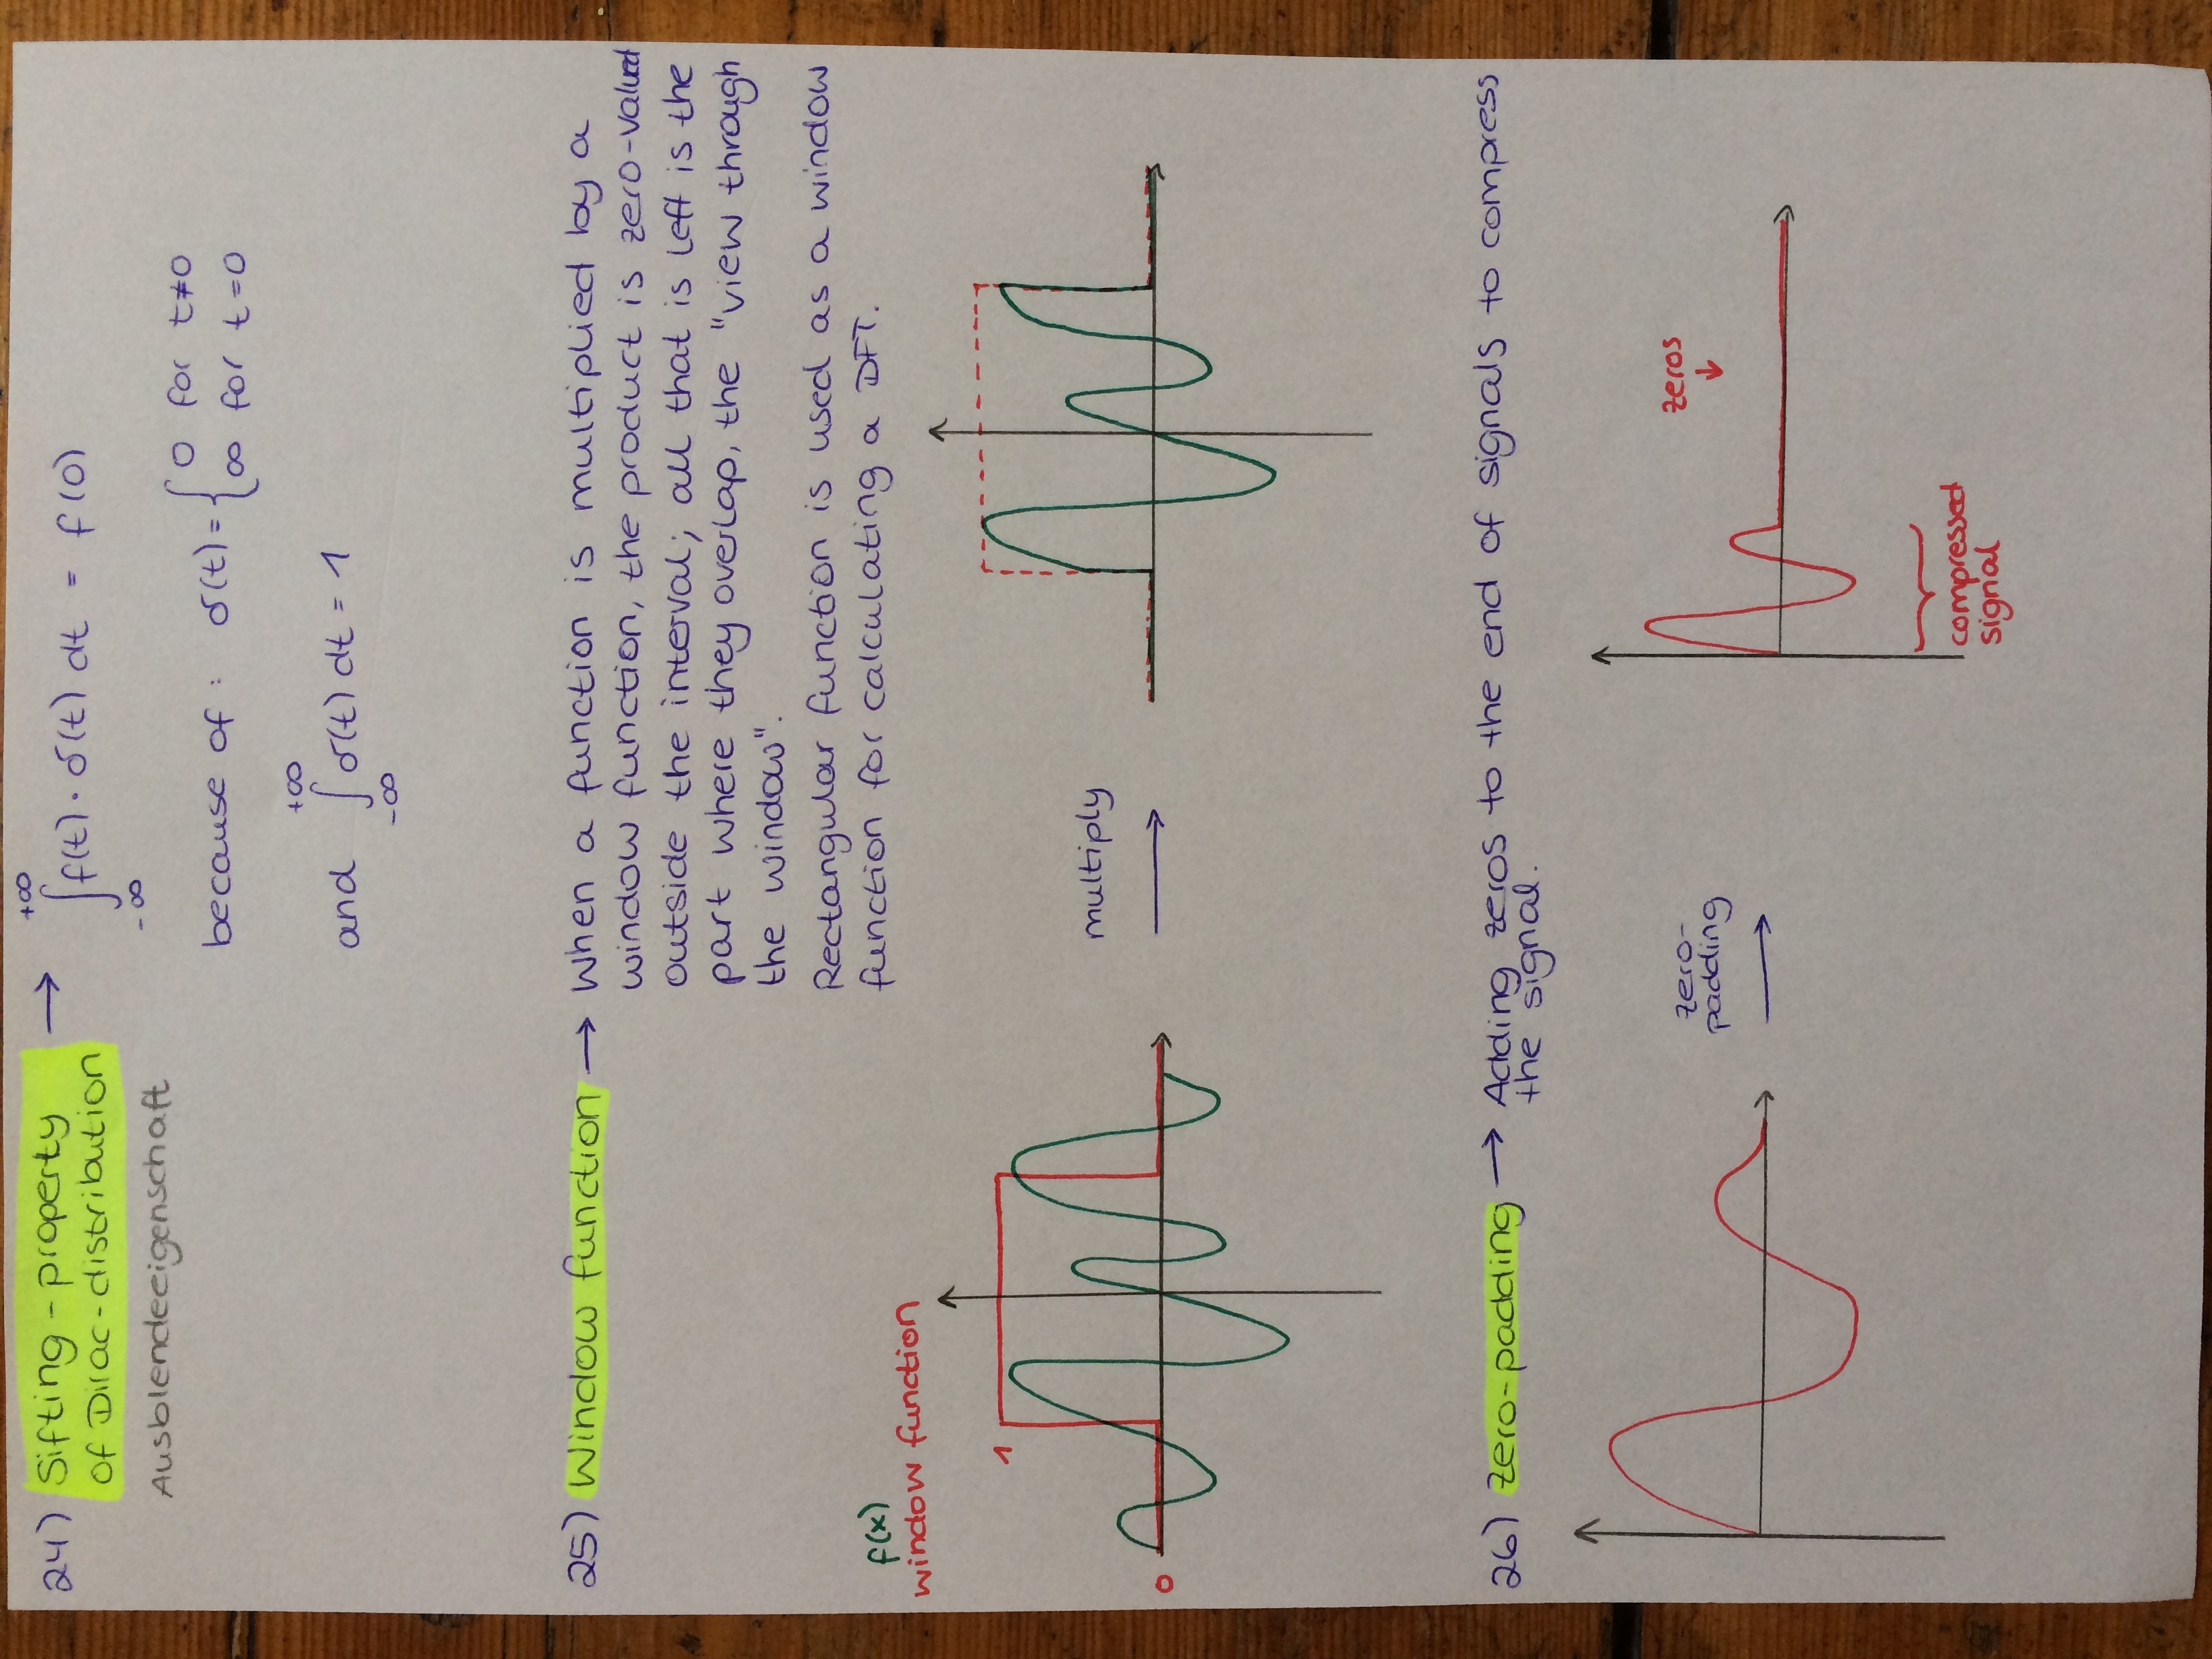 24) Sifting-property → +∞∫-∞ f(t) · δ(t) dt = f(0)
of Dirac-distribution
Ausblendeeigenschaft
because of : δ(t) = { 0 for t≠0
∞ for t=0
and +∞∫-∞ δ(t) dt = 1
25) Window function → When a function is multiplied by a
window function, the product is zero-valued
outside the interval; all that is left is the
part where they overlap, the "view through
the window".
Rectangular function is used as a window
function for calculating a DFT.
f(x)
window function
1
0
multiply
26) Zero-padding → Adding zeros to the end of signals to compress
the signal.
zero-
padding
zeros
↓
compressed
signal